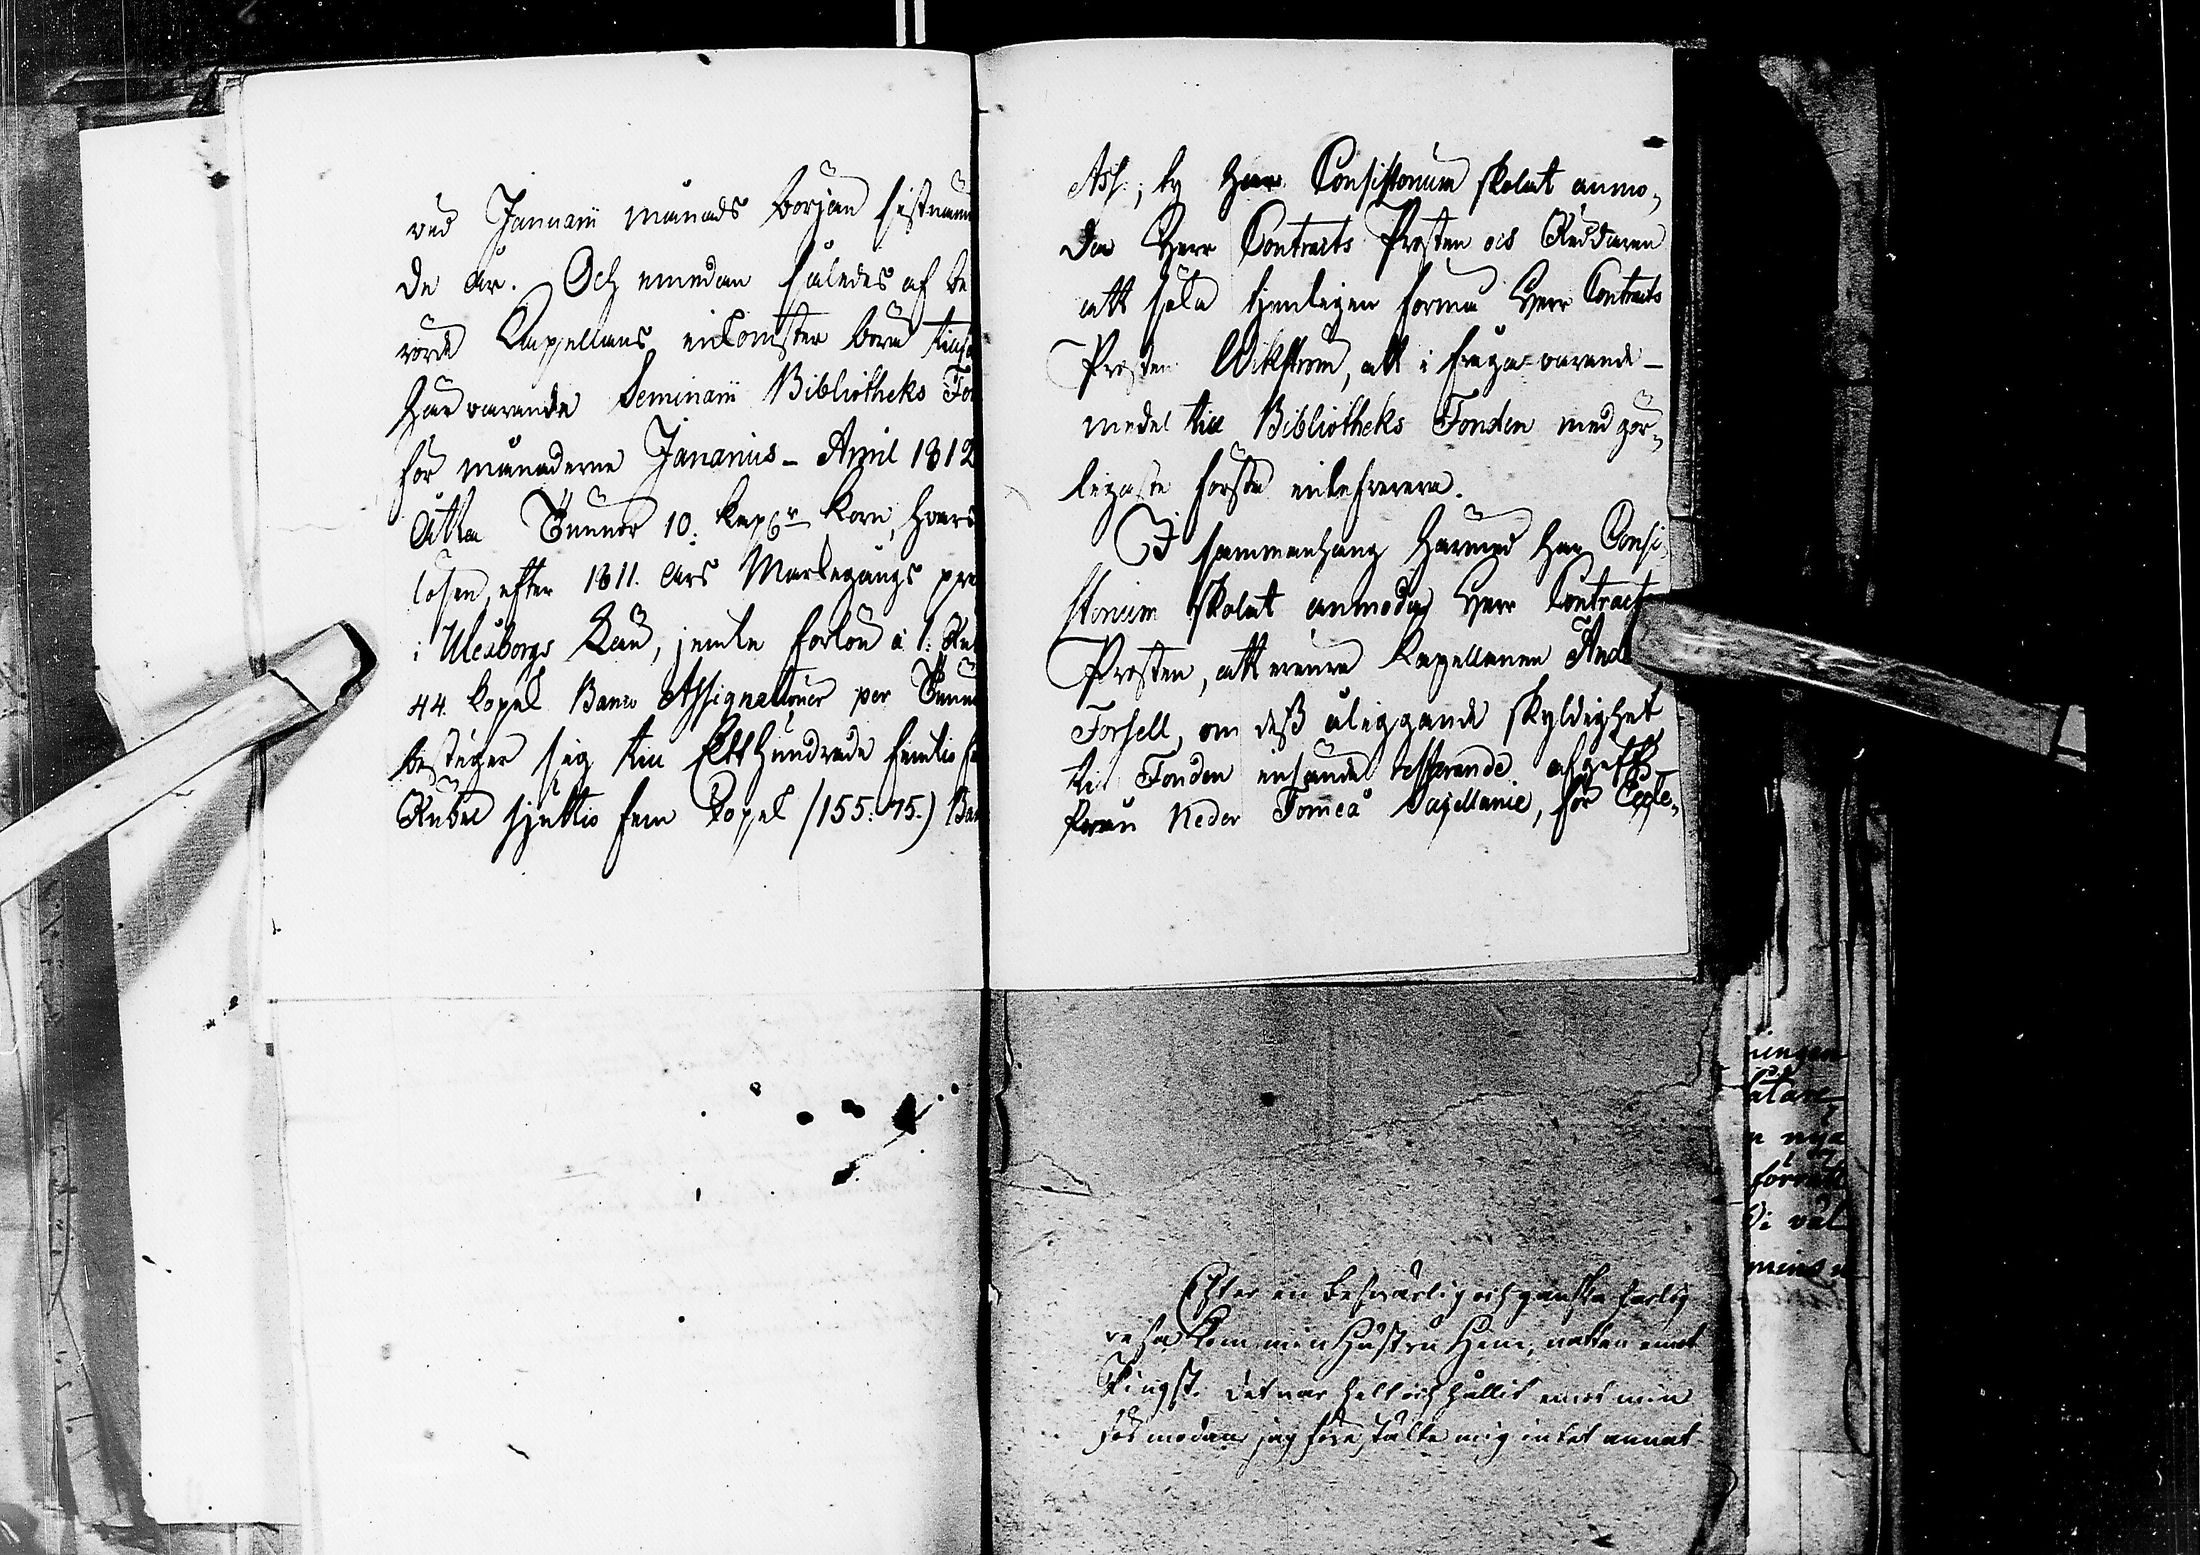 vid Januarii månads början sistnämn
de år. Och emedan således af be
rörde Capellans inkomster böra
härvarande Seminarii Bibliotheks Fon
för månaderne Januarius - April 1812
Åtta Tunnor 10: kapp:r Korn, hvars
lösen, efter 1811. Års Markegångs pri
i Uleåborgs Län, jemte forlön à 1. Rub
44. Kopek Banco Assignationer per Tunn
bestiger sig till Ett Hundrade femtio fe
Rubel sjuttio fem Kopek /155: 75.) Ban
Ass.; ty har Consistorium skolat anmo-
da Herr Contracts Prosten och Riddaren
att håla tjenligen förmå Herr Contracts
Prosten Wikström, att i fråga varande
medel till Bibliotheks Fonden med gör-
ligaste första inleverera.
I sammanhang härmed har Consi
storium skolat anmoda Herr Contracts
Prosten, att erinra Kapellanen And
Forsell, om dess åliggande skyldighet
till Fonden insända resterande afgift
från Neder Torneå Capellanie, för Eccle-
Efter en besvärlig och ganska farlig
resa kom min Hustru Hem, natten emot
Pingst. Det var helt och hållit emot min
förmodan, jag föreställte mig intet annat
ningen
låtare
n nya
förrätt
Di väl